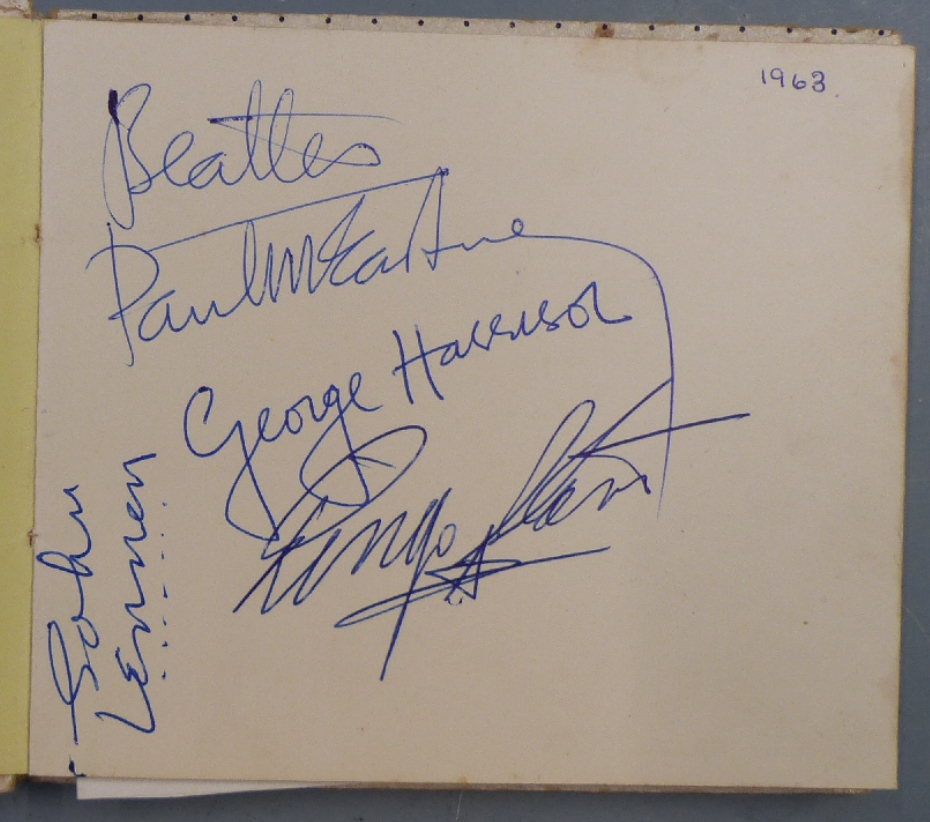 1963.
Beatles
Paul McCartney
George Harrison
Ringo Starr
John
Lennon